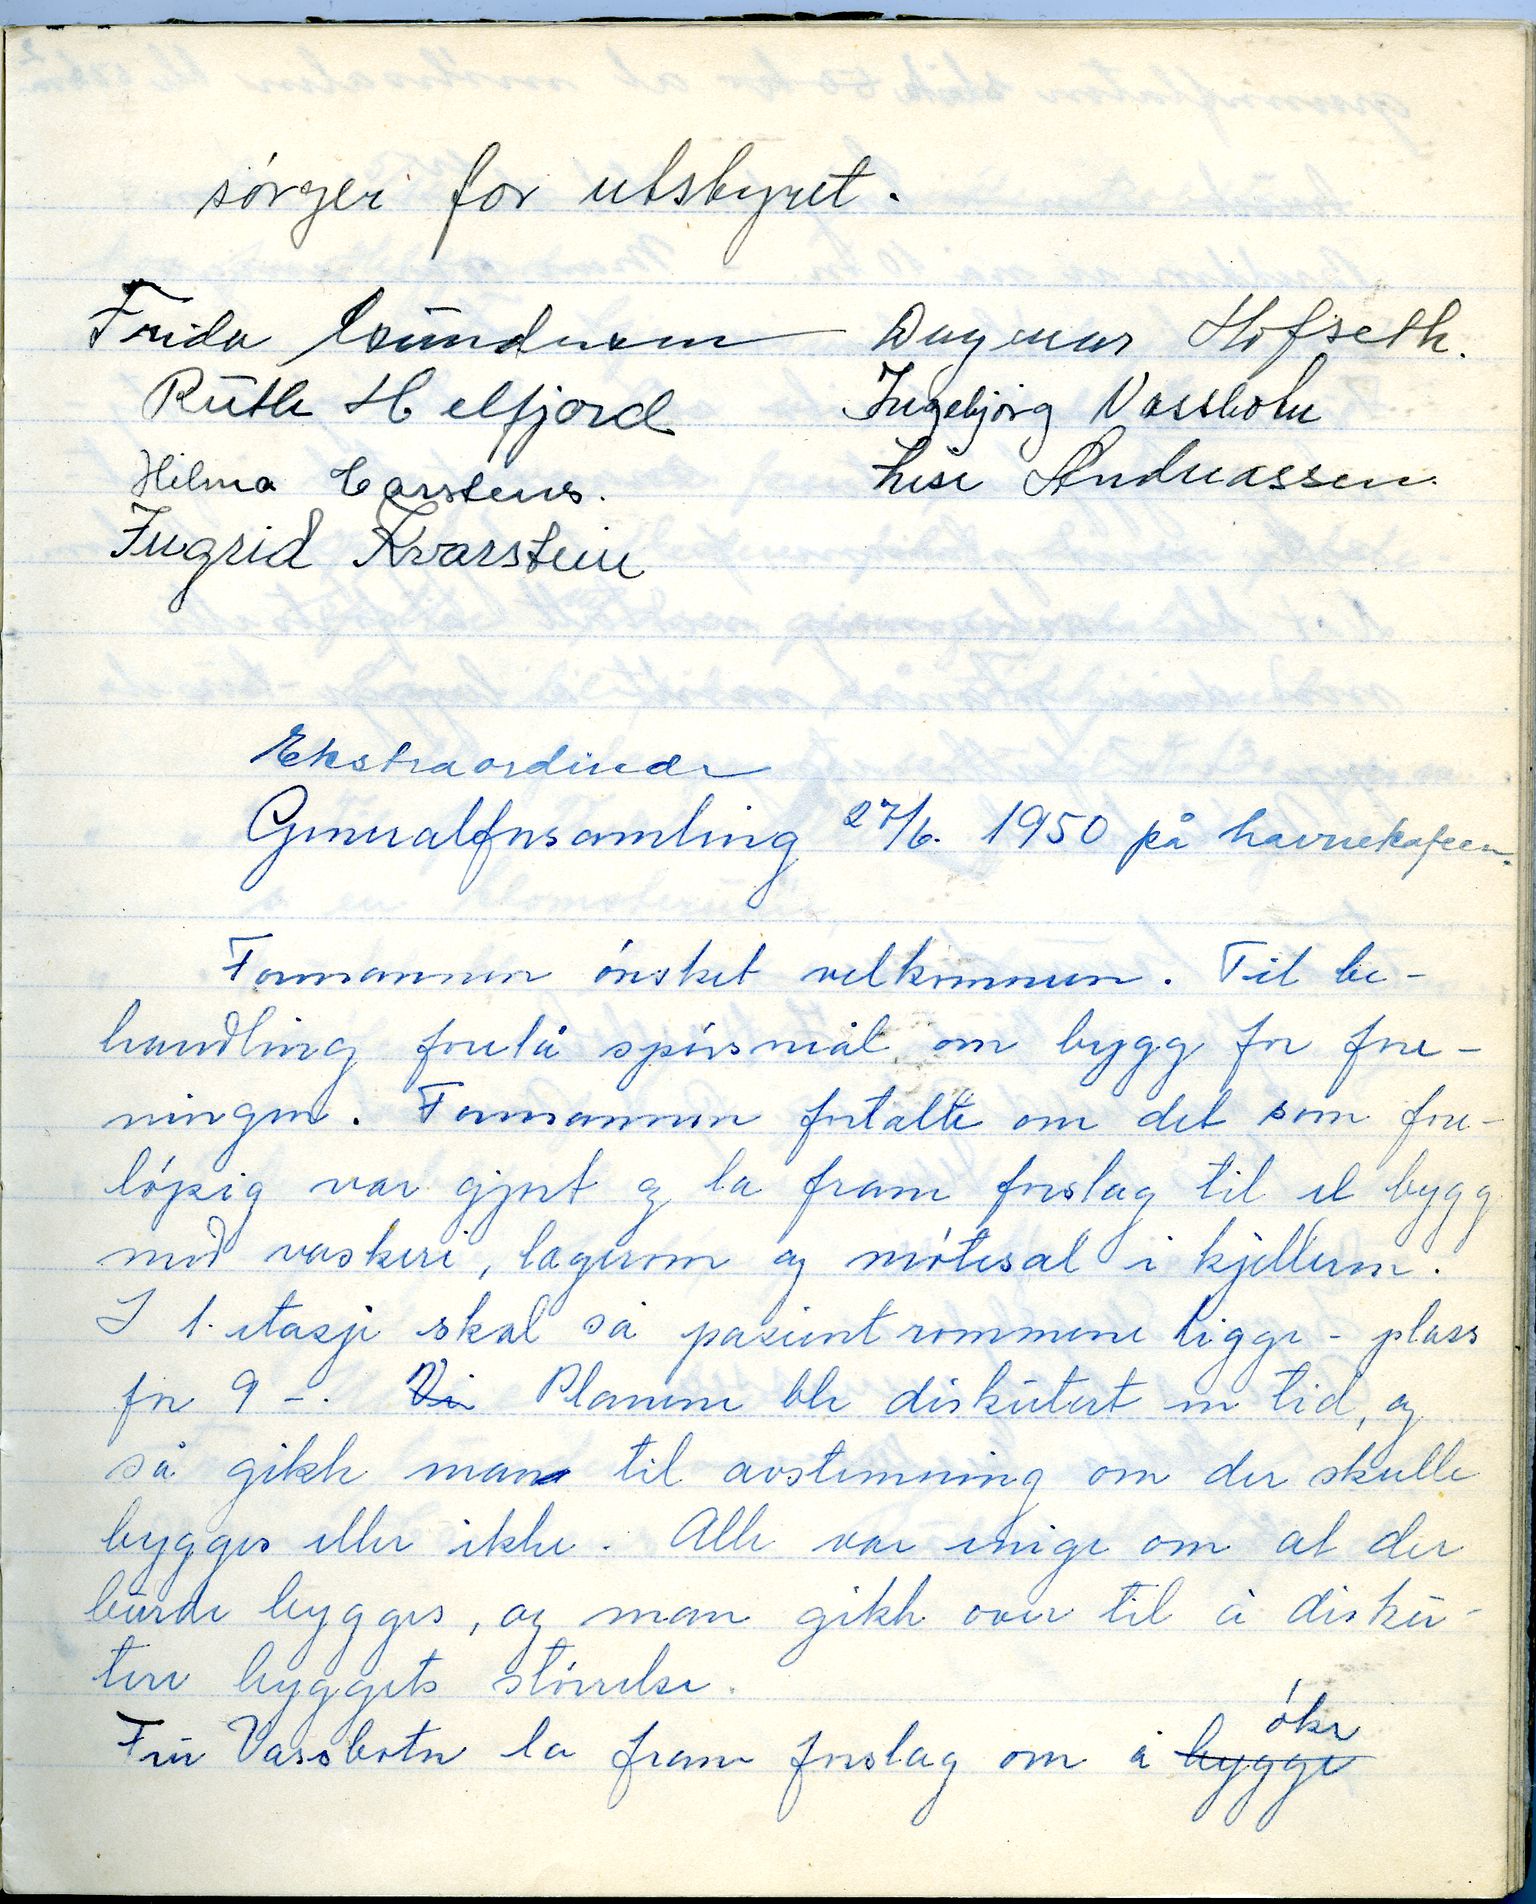 sórger for utstyret.
Frida Gundersen Dagmar Hofseth.
Rüth Helfjord Ingebjørg Vassbotn
Hilma Carstens. Lise Andreassen.
Ingrid Kvarstein
Ekstraordinær
Generalforsamling 27/6. 1950 på havnekafeen.
Formannen ónsket velkommen. Til be-
handling forelå spórsmål om bygg for fore-
ningen. Formannen fortalte om det som fore-
lópig var gjort og la fram forslag til et bygg
med vaskeri, lagerrom og mótesal i kjelleren.
I 1. etasje skal så pasientrommene ligge - plass
for 9 -. Vi Planene ble diskutert en tid, og
så gikk man til avstemning om der skulle
bygges eller ikke. Alle var enige om at der
burde bygges, og man gikk over til å disku-
tere byggets stórrelse.
Fru Vassbotn la fram forslag om å bygge óke